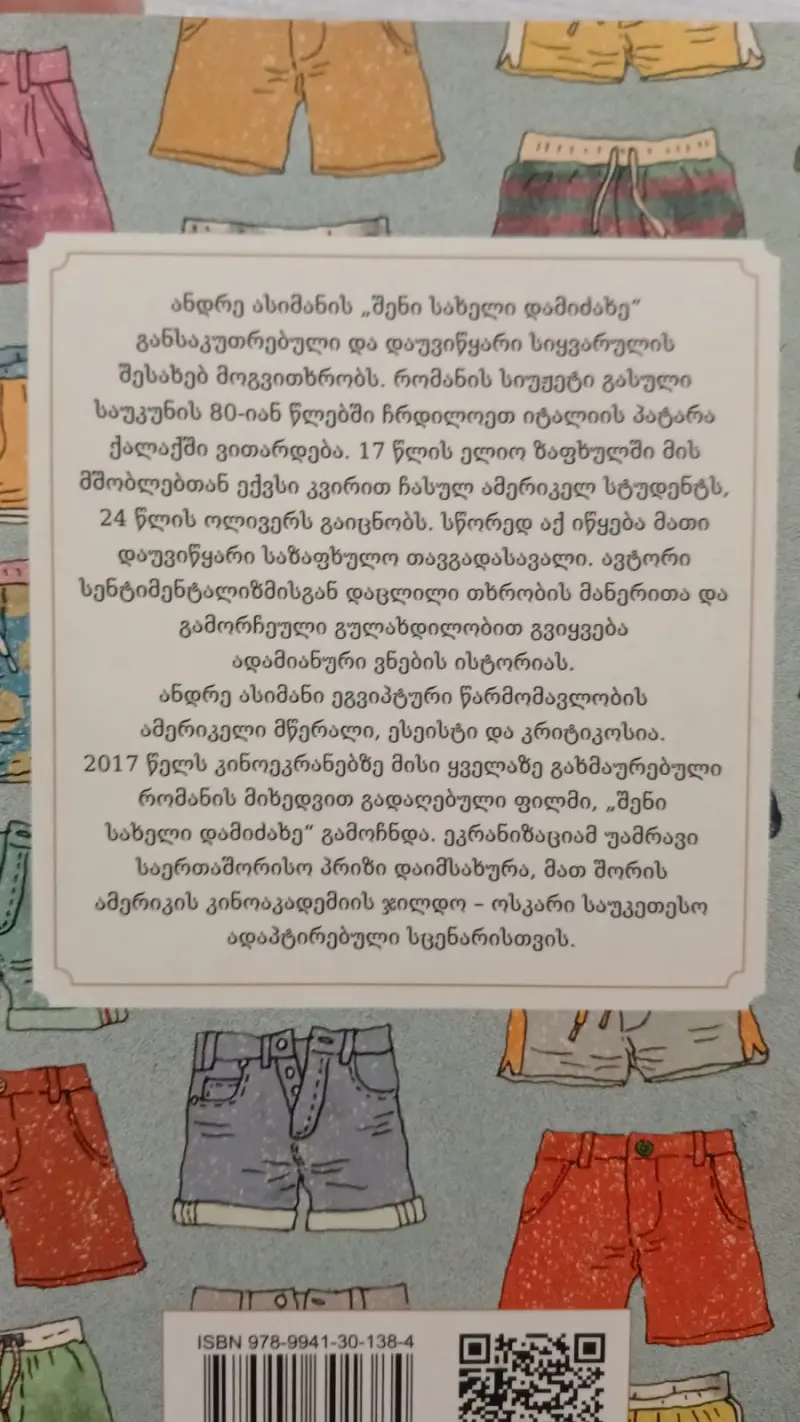 ანდრე ასიმანის „შენი სახელი დამიძახე“
განსაკუთრებული და დაუვიწყარი სიყვარულის
შესახებ მოგვითხრობს. რომანის სიუჟეტი გასული
საუკუნის 80-იან წლებში ჩრდილოეთ იტალიის პატარა
ქალაქში ვითარდება. 17 წლის ელიო ზაფხულში მის
მშობლებთან ექვსი კვირით ჩასულ ამერიკელ სტუდენტს,
24 წლის ოლივერს გაიცნობს. სწორედ აქ იწყება მათი
დაუვიწყარი საზაფხულო თავგადასავალი. ავტორი
სენტიმენტალიზმისგან დაცლილი თხრობის მანერითა და
გამორჩეული გულახდილობით გვიყვება
ადამიანური ვნების ისტორიას.
ანდრე ასიმანი ეგვიპტური წარმომავლობის
ამერიკელი მწერალი, ესეისტი და კრიტიკოსია.
2017 წელს კინოეკრანებზე მისი ყველაზე გახმაურებული
რომანის მიხედვით გადაღებული ფილმი, „შენი
სახელი დამიძახე“ გამოჩნდა. ეკრანიზაციამ უამრავი
საერთაშორისო პრიზი დაიმსახურა, მათ შორის
ამერიკის კინოაკადემიის ჯილდო – ოსკარი საუკეთესო
ადაპტირებული სცენარისთვის.
ISBN 978-9941-30-138-4